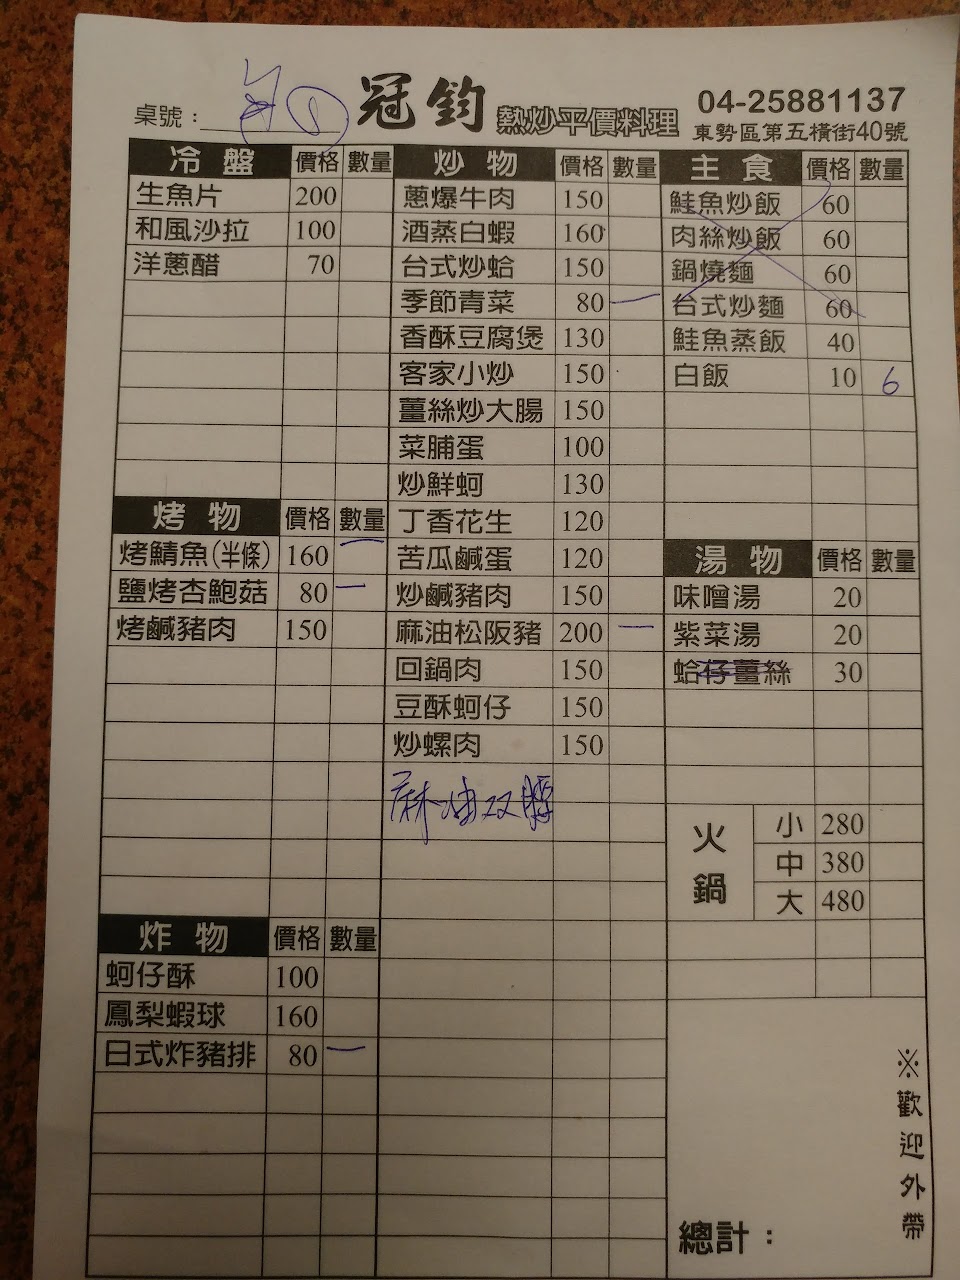 桌號：
冠鈞 熱炒平價料理
04-25881137
東勢區第五橫街40號
冷盤 價格 數量
生魚片 200
和風沙拉 100
洋蔥醋 70
烤物 價格 數量
烤鯖魚(半條) 160 一
鹽烤杏鮑菇 80 一
烤鹹豬肉 150
炸物 價格 數量
蚵仔酥 100
鳳梨蝦球 160
日式炸豬排 80 一
炒物 價格 數量
蔥爆牛肉 150
酒蒸白蝦 160
台式炒蛤 150
季節青菜 80 一
香酥豆腐煲 130
客家小炒 150
薑絲炒大腸 150
菜脯蛋 100
炒鮮蚵 130
丁香花生 120
苦瓜鹹蛋 120
炒鹹豬肉 150
麻油松阪豬 200 一
回鍋肉 150
豆酥蚵仔 150
炒螺肉 150
麻油双
主食 價格 數量
鮭魚炒飯 60
肉絲炒飯 60
鍋燒麵 60
台式炒麵 60
鮭魚蒸飯 40
白飯 10 6
湯物 價格 數量
味噌湯 20
紫菜湯 20
蛤仔薑絲 30
火鍋
小 280
中 380
大 480
※歡迎外帶
總計：